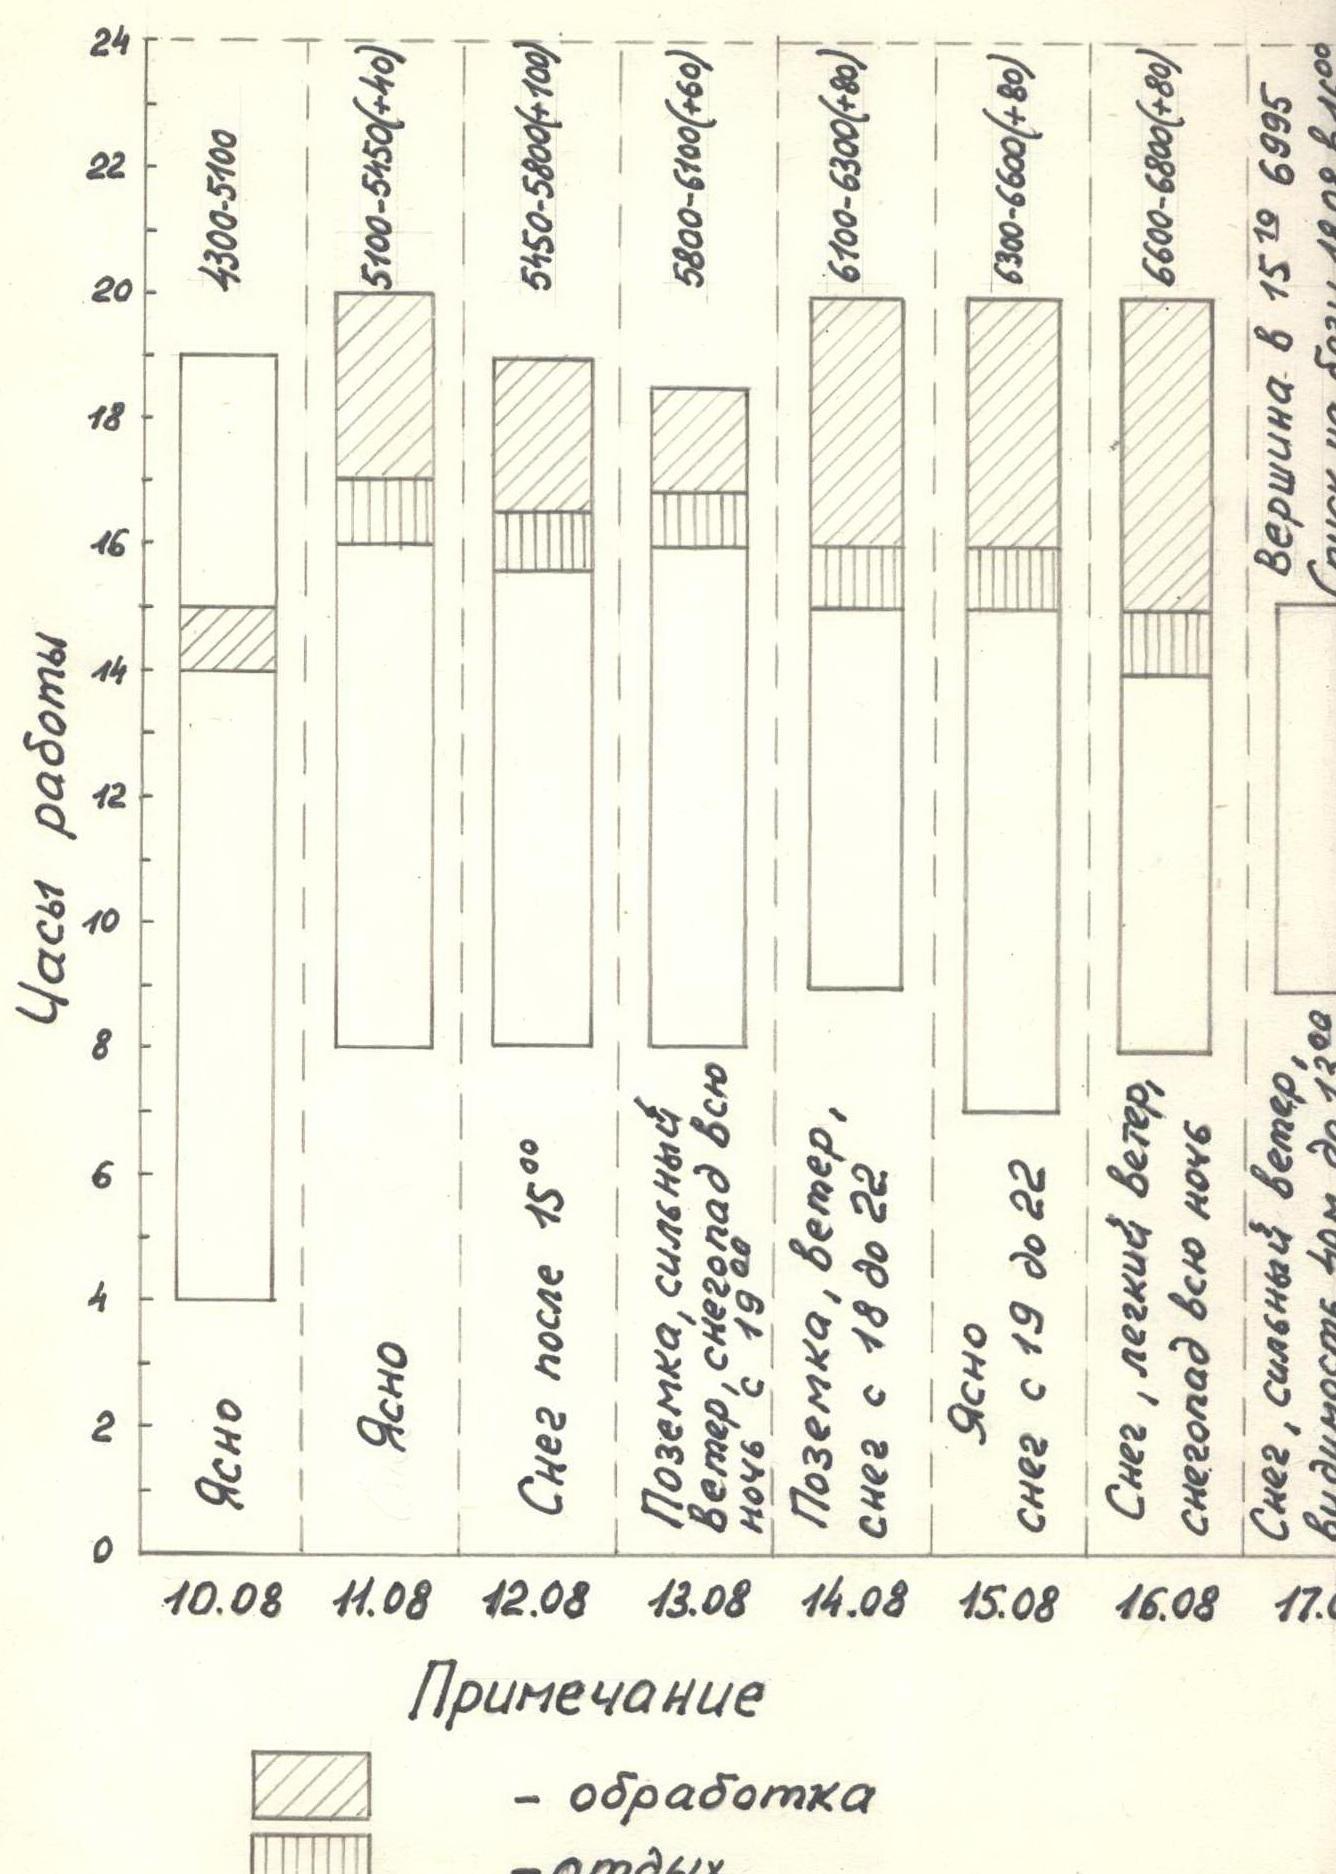 Часы работы
24
22
20
18
16
14
12
10
8
6
4
2
0
4300-5100
5100-5450(+40)
5450-5800(+100)
5800-6100(+60)
6100-6300(+80)
6300-6600(+80)
6600-6800(+80)
Вершина в 15 10 6995
Спуск на базы 18.08 в 16 00
Ясно
Ясно
Снег после 15 00
Поземка, сильный
ветер, снегопад всю
ночь с 19 00
Поземка, ветер,
снег с 18 до 22
Ясно
снег с 19 до 22
Снег, легкий ветер,
снегопад всю ночь
Снег, сильный ветер,
видимость 40м до 13 00
10.08
11.08
12.08
13.08
14.08
15.08
16.08
17.0
Примечание
- обработка
- отдых